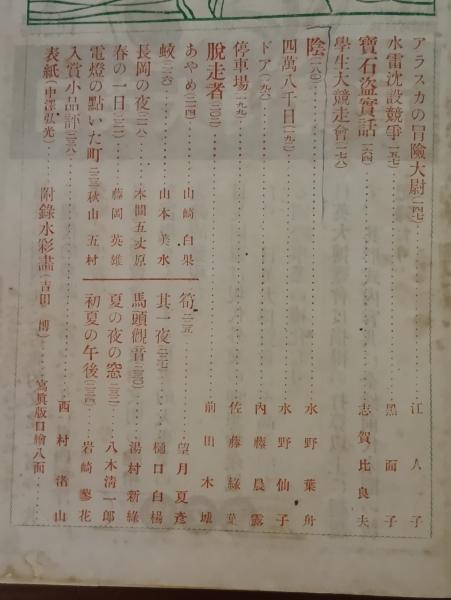 アラスカの冒險大尉(一四七)……江人子
水雷沈設競爭(一五七)……黑面子
寶石盜實話(一六四)……志賀比良夫
學生大競走會(一七八)
陰(一八六)……水野葉舟
四萬八千日(一九二)……水野仙子
ドア(一九六)……内藤晨露
停車場(一九九)……佐藤綠葉
脫走者(二〇三)……前田木城
あやめ(二一四)……山崎白果
筍(二二五)……望月夏彥
蚊(二一六)……山本美水
其一夜(二二七)……樋口白楊
長岡の夜(二一八)……本間五丈原
馬頭觀音(二三〇)……湯村新綠
春の一日(二二一)……藤岡英雄
夏の夜の窓(二三二)……八木清一郎
電燈の點いた町(二二三)秋山五村
初夏の午後(二三四)……岩崎蓼花
入賞小品評(二三八)……西村渚山
表紙(中澤弘光)……附錄水彩畫(吉田博)……寫眞版口繪八面